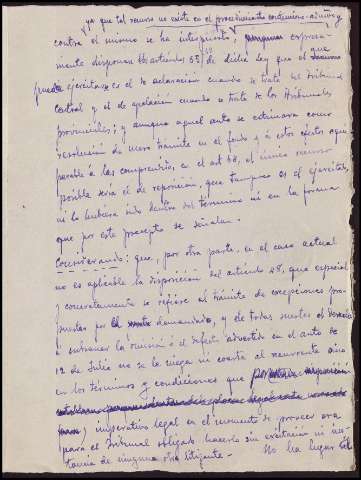 ya que tal recurso no existe en el procedimiento contencioso-adtivo y
contra el mismo se ha interpuesto, expresa-
mente disponen los artículos 63 de dicha Ley que el
puede ejercitarse es el de aclaración cuando se trate del Tribunal
Central y el de apelación cuando se trate de los Tribunales
provinciales; y aunque aquel auto se estimara como
resolución de mero trámite en el fondo y a estos efectos equi-
parable a las comprendidas en el art 68, el único recurso
posible sería el de reposición, que tampoco es el ejercitado,
ni lo hubiera sido dentro del término ni en la forma
que por este precepto se señalan.
Considerando: que, por otra parte, en el caso actual
no es aplicable la disposición del artículo 48, que especial
y concretamente se refiere al trámite de excepciones pro-
puestas por el demandado, y de todas suertes el derecho
a subsanar la omisión o el defecto advertido en el auto de
12 de Julio no se le niega ni coarta al recurrente sino
en los términos y condiciones que
imperativo legal en el momento de proveer ora
para el Tribunal obligado hacerlo sin excitación ni ins-
tancia de ninguna otra litigante. No ha lugar